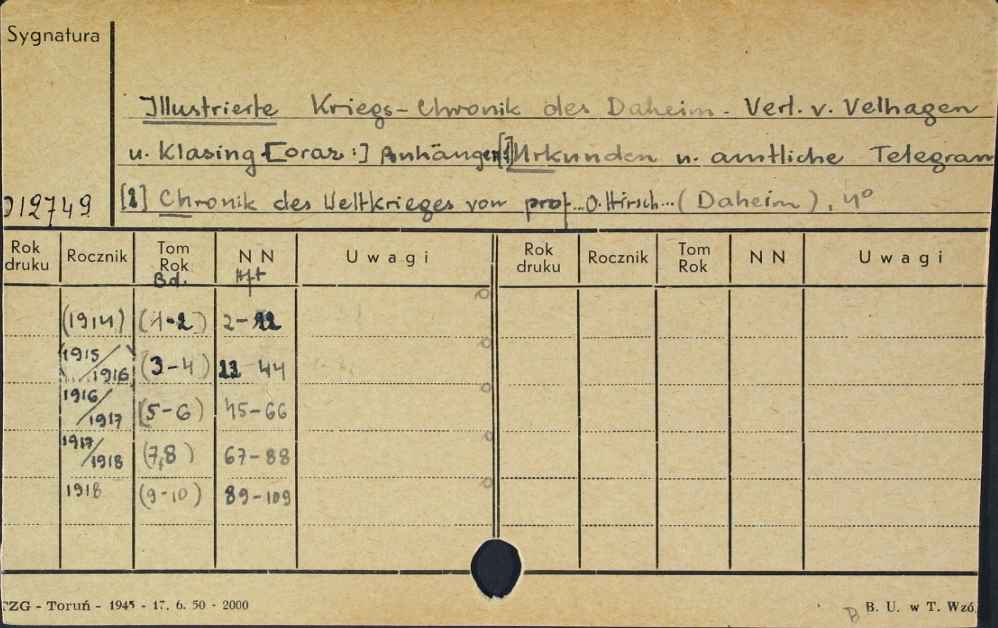 Sygnatura
Illustrierte Kriegs-Chronik des Daheim. Verl. v. Velhagen
u. Klasing [oraz:] Anhänger: [1] Urkunden u. amtliche Telegram
[2] Chronik des Weltkrieges von prof. O. Hirsch... (Daheim), 4°
012749
Rok druku Rocznik Tom Rok Bd. NN Hft Uwagi Rok druku Rocznik Tom Rok NN Uwagi
(1914) (1-2) 2-22
(1915/1916) (3-4) 23 44
1916/1917 (5-6) 45-66
1917/1918 (7,8) 67-88
1918 (9-10) 89-109
TZG - Toruń - 1945 - 17. 6. 50 - 2000
B B. U. w T. Wzó